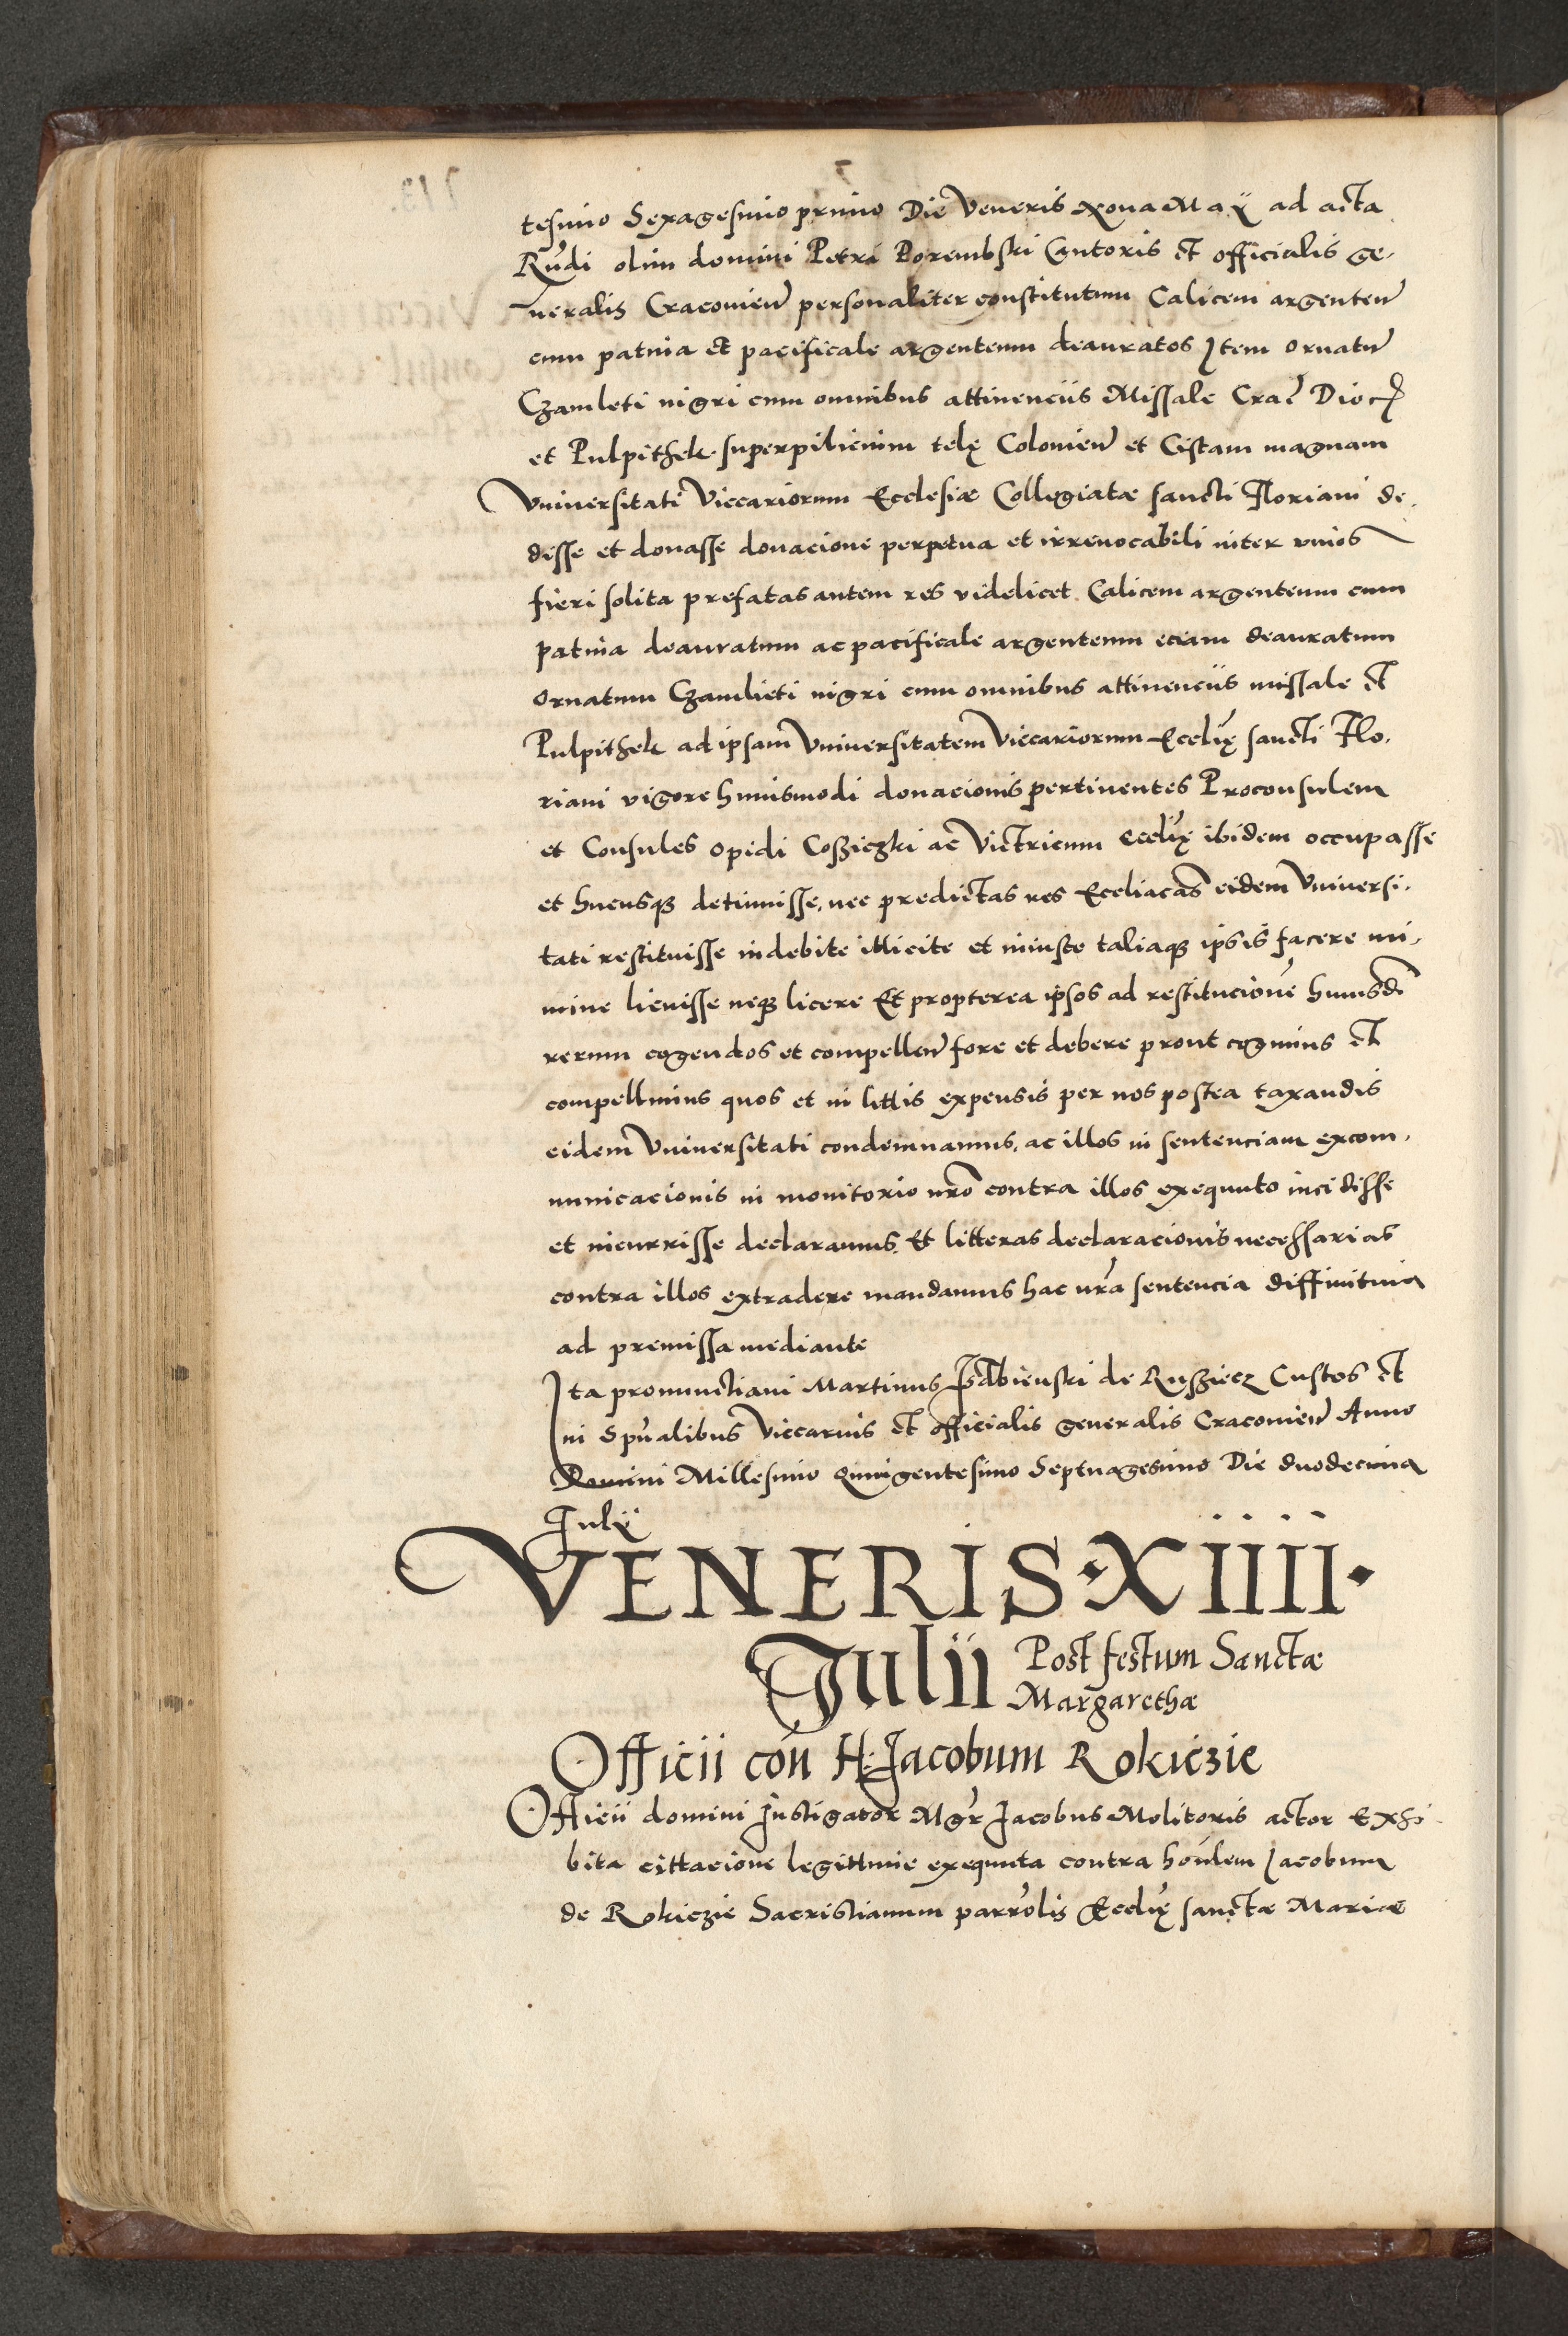 tesimo Sexagesimo primo Die Veneris Nona Maÿ ad acta
Rndi olim domini Petri Porembski Cantoris et officialis ge-
neralis Cracovien personaliter constitutum Calicem argenteū
cum patina et pacificale argenteum deauratos Item ornatū
Czamleti nigri cum omnibus attinenciis Missale Crac Dioc
et Pulpithek superpilicium telę Colonien et Cistam magnam
Universitati Viccariorum Ecclesiæ Collegiatæ sancti Floriani de-
disse et donasse donacione perpetua et irrevocabili inter vivos
fieri solita prefatas autem res videlicet Calicem argenteum cum
patina deauratum ac pacificale argenteum eciam deauratum
ornatum Czamlieti nigri cum omnibus attinenciis missale et
Pulpithek ad ipsam Universitatem Viccariorum Ecclię sancti Flo-
riani vigore huiusmodi donacionis pertinentes Proconsulem
et Consules opidi Cosziczki ac Victricum ecclię ibidem occupasse
et hucusq detinuisse, nec predictas res Eccliacas eidem Universi-
tati restituisse indebite illicite et iniuste taliaq ipsis facere mi-
nime licuisse neq licere Et propterea ipsos ad restitucionē huiusdi
rerum cogendos et compellen fore et debere prout cogimus et
compellimus quos et in littis expensis per nos postea taxandis
eidem Universitati condemnamus, ac illos in sentenciam excom-
municacionis in monitorio nro contra illos exequuto incidisse
et incurrisse declaramus, Et litteras declaracionis necessarias
contra illos extradere mandamus hac nra sentencia diffinitiva
ad premissa mediante
Ita pronunctiavi Martinus Izdbienski de Rusziecz Custos et
in Spualibus Viccarius et officialis generalis Cracovien Anno
Domini Millesimo Quingentesimo Septuagesimo Die duodecima
Julÿ
VENERIS·XIIII·
Julii Post festum Sanctæ
Margarethæ
Officii con H. Jacobum Rokiczie
Officii domini Instigator Mgr Jacobus Molitoris actor Exhi-
bita cittacione legittime exequuta contra honlem Jacobum
de Rokiczie Sacristianum parrolis Ecclię sanctæ Mariæ